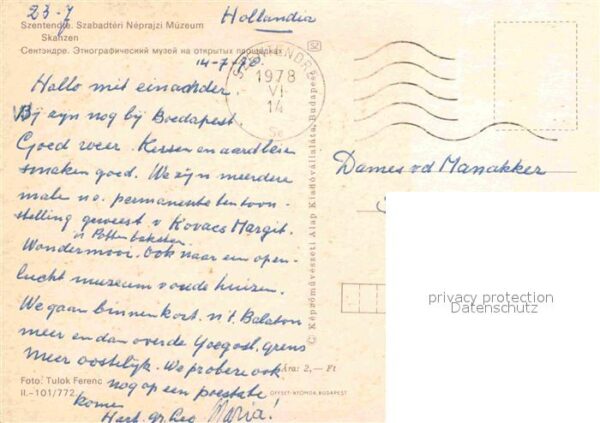 23-7
Hollandia
Szentendre. Szabadtéri Néprajzi Múzeum
Skanzen
Сентэндре. Этнографический музей на открытых площадках
14-7-78
SZENTENDRE
1978
VI
14
Hallo mit einander.
Wij zijn nog bij Boedapest.
Goed weer. Kersen en aardbeien
smaken goed. We zijn meerdere
malen o. permanente tentoon-
stelling geweest v Kovacs Margit.
'n Pottenbakster.
Wondermooi. Ook naar een open-
lucht museum v oude huizen.
We gaan binnenkort n 't Balaton
meer en dan over de Joegosl. grens
meer oostelijk. We proberen ook
nog op een poestate
komen
Hart. gr. Leo Maria!
Dames vd Manakker
© Képzőművészeti Alap Kiadóvállalata, Budapest
Ára: 2,— Ft
Foto: Tulok Ferenc
II.-101/772
OFFSET-NYOMDA, BUDAPEST
privacy protection
Datenschutz